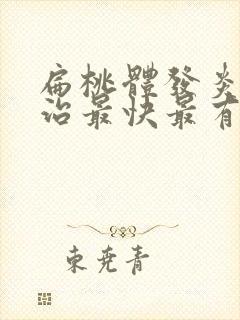 扁桃體發炎
治最快最有
東堯青